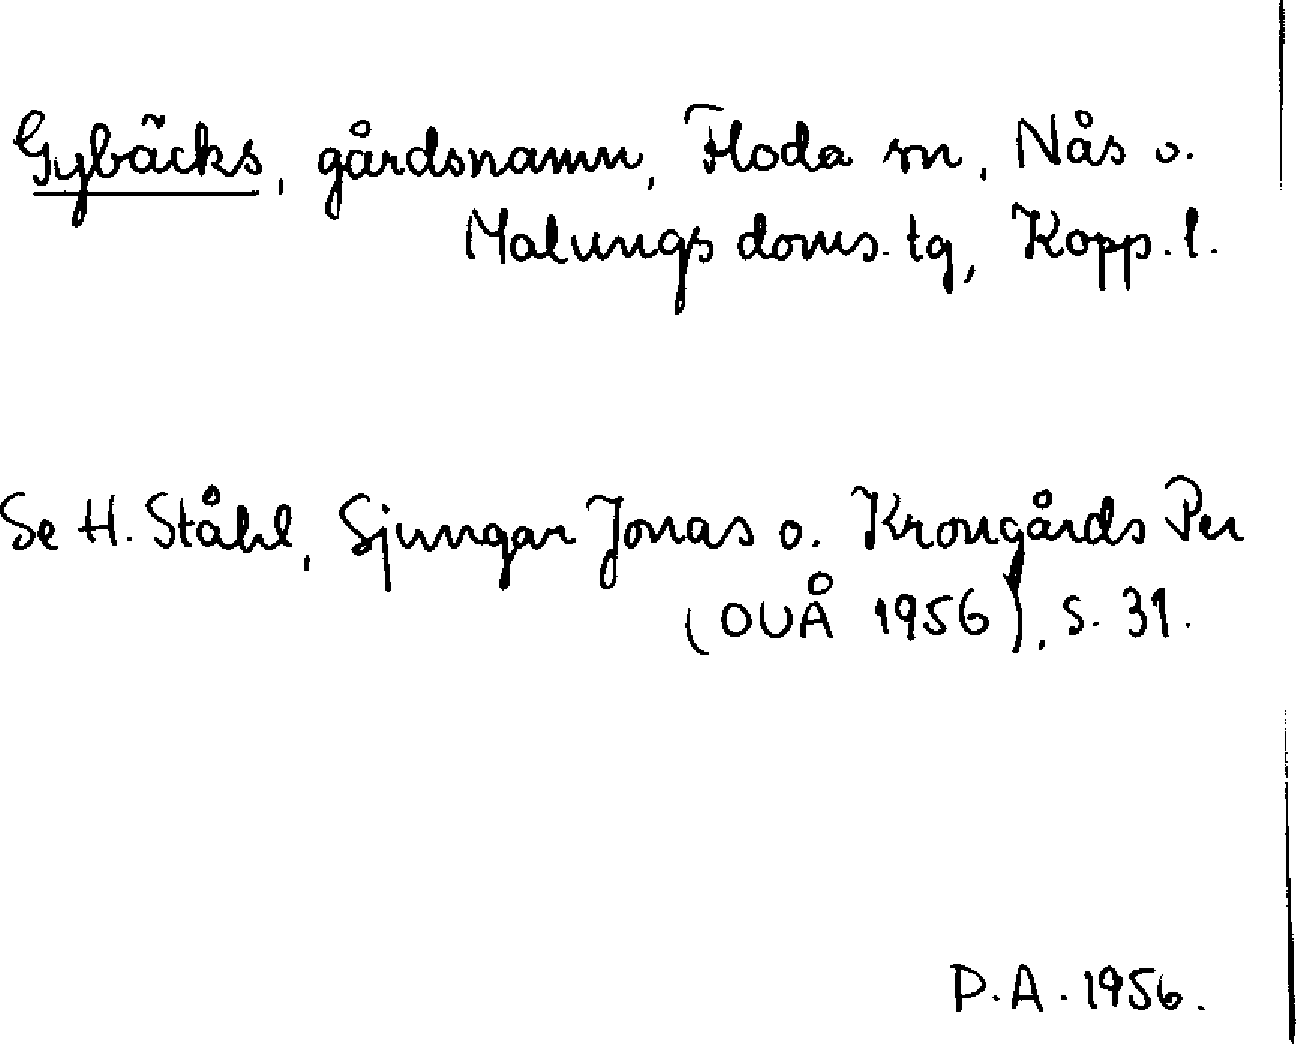 Gybäcks, gårdsnamn, Floda sn, Nås o.
Malungs doms. tg, Kopp. l.
Se H. Ståhl, Sjungar Jonas o. Krongårds Per
(OUÅ 1956), s. 31.
P.A. 1956.